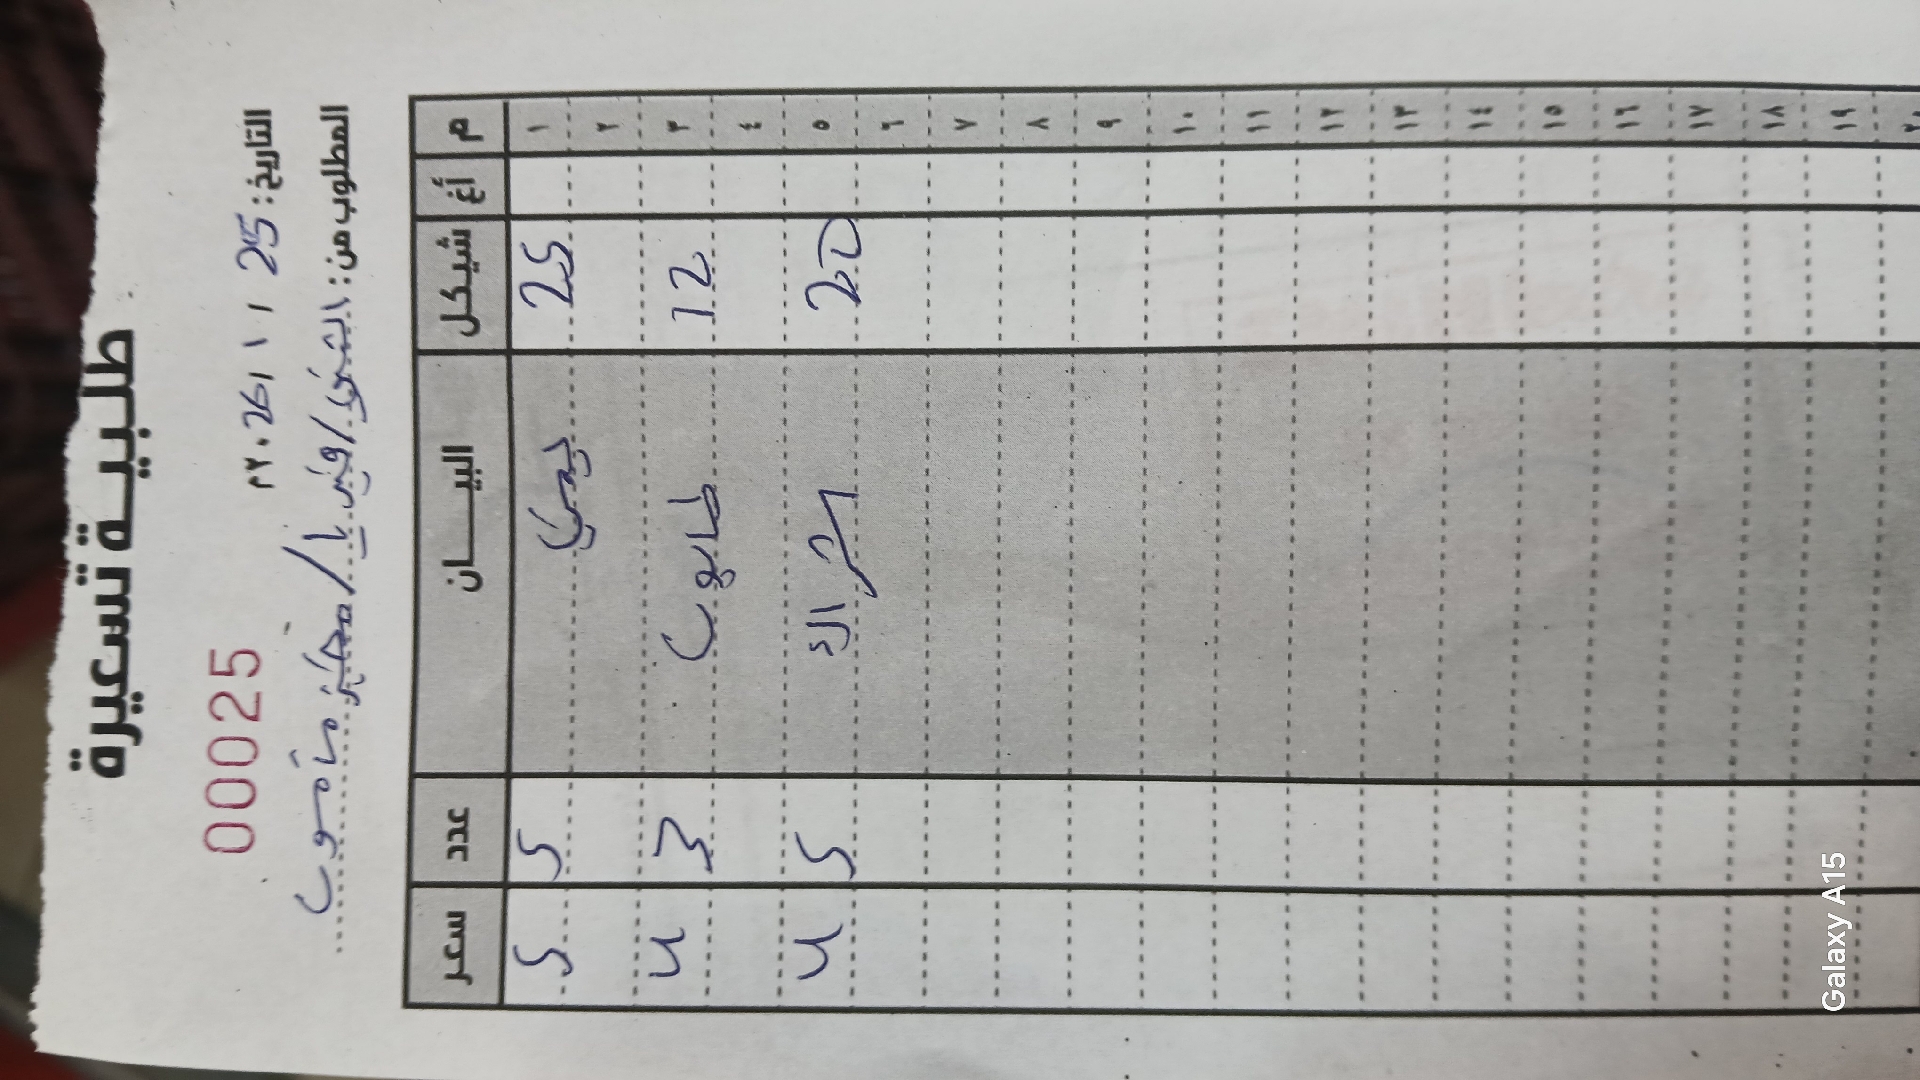 طلبية تسعيرة
00025
التاريخ: 25 / 1 / 2026م
المطلوب من:
م أغ شيكل البيـــان عدد سعر
١ 25 يمني 5 5
٢
٣ 12 طابون 3 4
٤
٥ 20 5 4
٦
٧
٨
٩
١٠
١١
١٢
١٣
١٤
١٥
١٦
١٧
١٨
١٩
٢٠
Galaxy A15